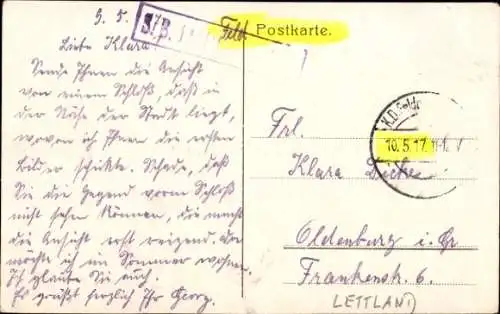 9. 5.
S.B.
Feld Postkarte.
Liebe Klara!
Sende Ihnen die Ansicht
von einem Schloß, daß in
der Nähe der Stadt liegt,
wovon ich Ihnen die ersten
Bilder schickte. Schade, daß
Sie die Gegend vorm Schloß
nicht sehen können, die macht
die Ansicht erst reizend. Da
möchte ich im Sommer wohnen.
Ich glaube Sie auch.
Es grüßt herzlich Ihr Georg.
K.D. Feldp
10.5.17. V
Frl.
Klara
Oldenburg i. Gr.
Frankenstr. 6.
LETTLAND